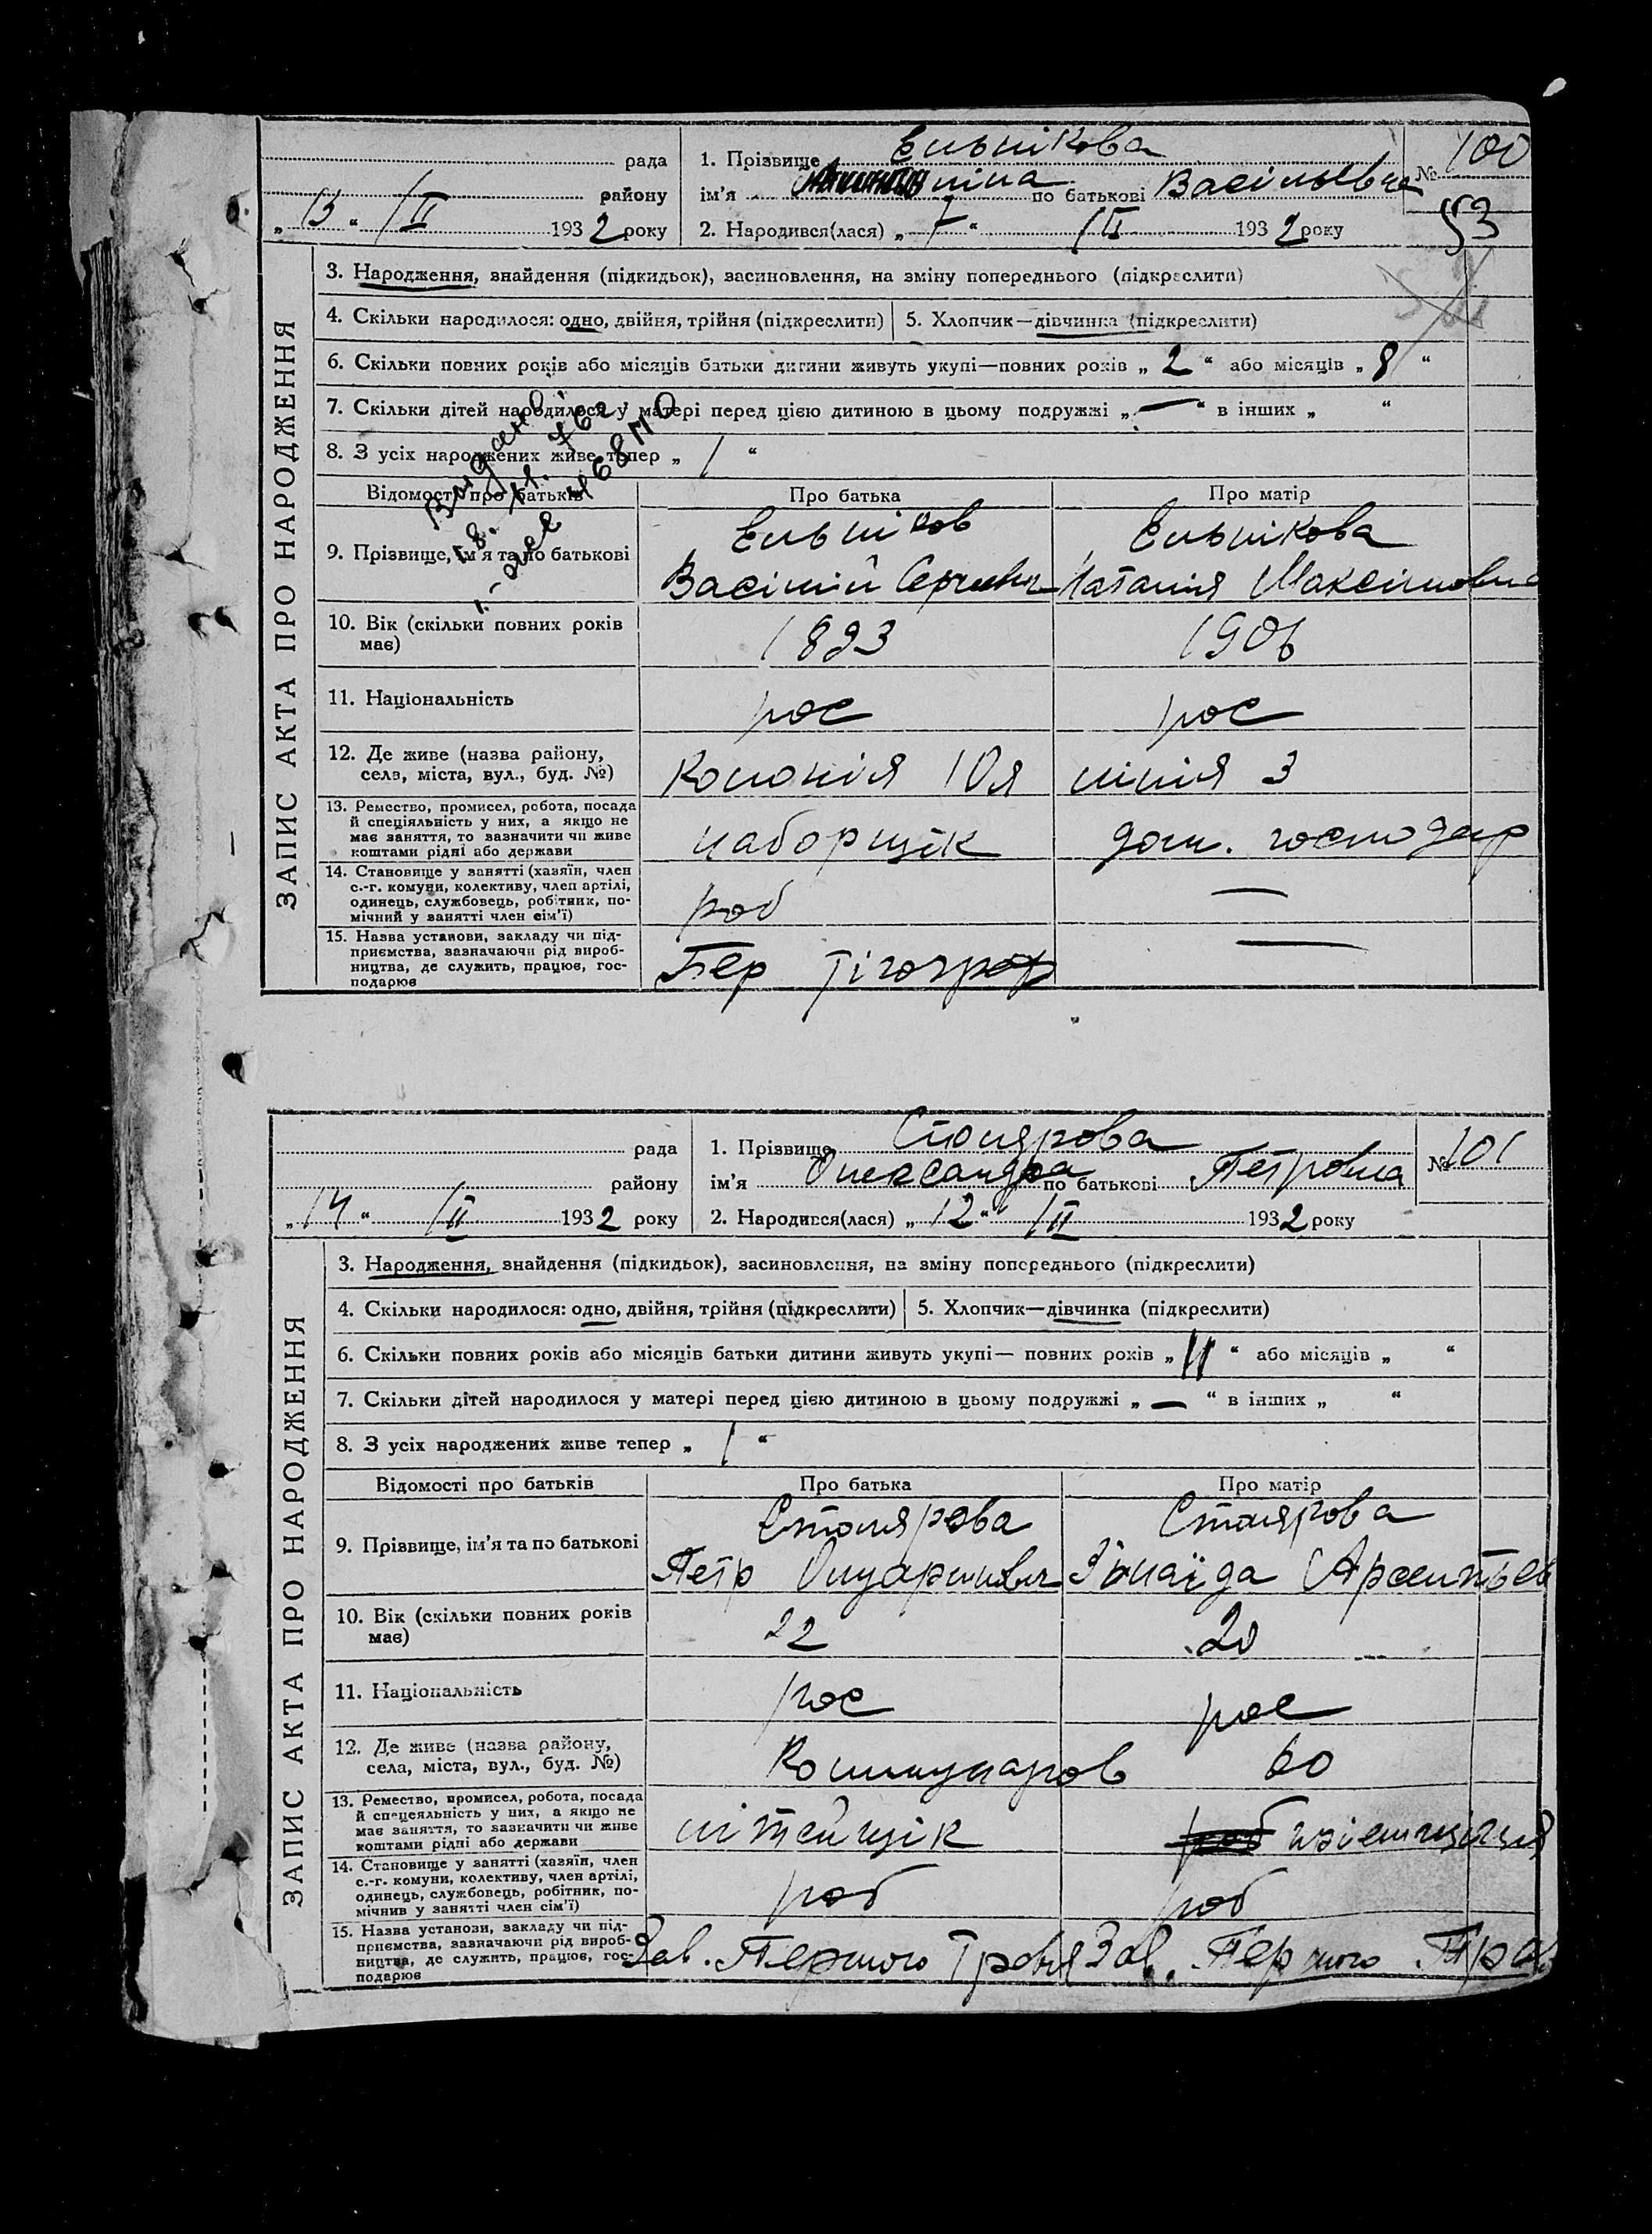 рада 1. Прізвище Ельнікова № 100
району ім'я ніна по батькові Васільевна
„13“ /II 1932 року 2. Народився(лася) „7“ /II 1932 року 53
ЗАПИС АКТА ПРО НАРОДЖЕННЯ
3. Народження, знайдення (підкидьок), засиновлення, на зміну попереднього (підкреслити)
4. Скільки народилося: одно, двійня, трійня (підкреслити) 5. Хлопчик—дівчинка (підкреслити)
6. Скільки повних років або місяців батьки дитини живуть укупі—повних років „2“ або місяців „8“
7. Скільки дітей народилося у матері перед цією дитиною в цьому подружжі „—“ в інших „ “
8. З усіх народжених живе тепер „1“
Відомості про батьків Про батька Про матір
9. Прізвище, ім'я та по батькові Ельніков Ельнікова
Васілій Сергиевич Наталия Максімовна
10. Вік (скільки повних років має) 1893 1906
11. Національність рос рос
12. Де живе (назва району, села, міста, вул., буд. №) Колонія 10я лінія 3
13. Ремество, промисел, робота, посада й спеціяльність у них, а якщо не має заняття, то зазначити чи живе коштами рідні або держави наборщік дом. господар
14. Становище у занятті (хазяїн, член с.-г. комуни, колективу, член артілі, одинець, службовець, робітник, помічний у занятті член сім'ї) роб —
15. Назва установи, закладу чи підприємства, зазначаючи рід виробництва, де служить, працює, господарює Пер —
рада 1. Прізвище Столярова № 101
району ім'я Олександра по батькові Петровна
„14“ /II 1932 року 2. Народився(лася) „12“ /II 1932 року
ЗАПИС АКТА ПРО НАРОДЖЕННЯ
3. Народження, знайдення (підкидьок), засиновлення, на зміну попереднього (підкреслити)
4. Скільки народилося: одно, двійня, трійня (підкреслити) 5. Хлопчик—дівчинка (підкреслити)
6. Скільки повних років або місяців батьки дитини живуть укупі— повних років „ “ або місяців „ “
7. Скільки дітей народилося у матері перед цією дитиною в цьому подружжі „—“ в інших „ “
8. З усіх народжених живе тепер „1“
Відомості про батьків Про батька Про матір
9. Прізвище, ім'я та по батькові Столярова Столярова
Петр Зінаїда Арсентьев
10. Вік (скільки повних років має) 22 20
11. Національність рос рос
12. Де живе (назва району, села, міста, вул., буд. №) Коммунаров 60
13. Ремество, промисел, робота, посада й спецеяльність у них, а якщо не має заняття, то зазначити чи живе коштами рідні або держави літейщік
14. Становище у занятті (хазяїн, член с.-г. комуни, колективу, член артілі, одинець, службовець, робітник, помічнив у занятті член сім'ї) роб роб
15. Назва установи, закладу чи підприємства, зазначаючи рід виробництва, де служить, працює, господарює Зав. Першого Травня Зав. Першого Трав